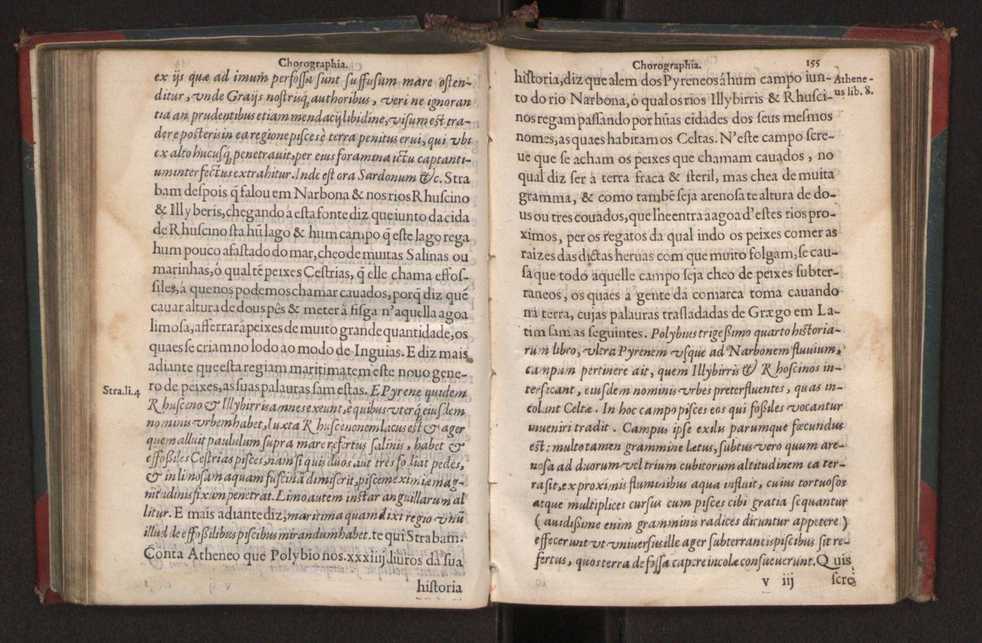 Chorographia.
ex ijs quæ ad imum perfossa sunt suffusum mare osten-
ditur, vnde Graijs nostrisq̃ authoribus, veri ne ignoran
tia an prudentibus etiam mendacij libidine, visum est tra-
dere posteris in ea regione pisces è terra penitus erui, qui vbi
ex alto hucusq̃ penetrauit, per eius foramina ictu captanti-
um interfectus extrahitur. Inde est ora Sardonum &c. Stra
bam despois q̃ falou em Narbona & nos rios Rhuscino
& Illyberis, chegando à esta fonte diz que iunto da cida
de Rhuscino sta hũ lago & hum campo q̃ este lago rega
hum pouco afastado do mar, cheo de muitas Salinas ou
marinhas, ó qual tẽ peixes Cestrias, q̃ elle chama effos-
siles, à que nos podemos chamar cauados, porq̃ diz que
cauar altura de dous pés & meter à fisga n'aquella agoa
limosa, afferrarà peixes de muito grande quantidade, os
quaes se criam no lodo ao modo de Inguias. E diz mais
adiante que esta regiam maritima tem este nouo gene-
ro de peixes, as suas palauras sam estas. E Pyrene quidem
Stra.li.4
Rhuscino & Illybirris amnes exeunt, è quibus vterq̃ eiusdem
nominis vrbem habet, Iuxta Rhuscinonem lacus est & ager
quem alluit paululum supra mare refertus salinis, habet &
effossiles Cestrias pisces, nam si quis duos, aut tres fodiat pedes,
& in limosam aquam fuscina dimiserit, piscem eximiæ mag-
nitudinis fixum penetrat. Limo autem instar anguillarum al
litur. E mais adiante diz, maritima quam dixi regio vnũ
illud de effossilibus piscibus mirandum habet. te qui Strabam.
Conta Atheneo que Polybio nos .xxxiiij. liuros da sua
historia
Chorographia. 155
historia, diz que alem dos Pyreneos á hum campo iun-
Athene-
us lib. 8.
to do rio Narbona, ó qual os rios Illybirris & Rhusci-
nos regam passando por hũas cidades dos seus mesmos
nomes, as quaes habitam os Celtas. N'este campo scre-
ue que se acham os peixes que chamam cauados, no
qual diz ser à terra fraca & steril, mas chea de muita
gramma, & como tambẽ seja arenosa te altura de do-
us ou tres couados, que lhe entra à agoa d'estes rios pro-
ximos, per os regatos da qual indo os peixes comer as
raizes das dictas heruas com que muito folgam, se cau-
sa que todo aquelle campo seja cheo de peixes subter-
raneos, os quaes à gente da comarca toma cauando
na terra, cujas palauras trasladadas de Græco em La-
tim sam as seguintes. Polybius trigesimo quarto historia-
rum libro, vltra Pyrenem vsque ad Narbonem fluuium,
campum pertinere ait, quem Illybirris & Rhoscinos in-
tersecant, eiusdem nominis vrbes preterfluentes, quas in-
colunt Celtæ. In hoc campo pisces eos qui fossiles vocantur
inueniri tradit. Campus ipse exilis parumque fœcundus
est: multo tamen grammine lætus, subtus vero quum are-
nosa ad duorum vel trium cubitorum altitudinem ea ter-
ra sit, ex proximis fluminibus aqua influit, cuius tortuosos
atque multiplices cursus cum pisces cibi gratia sequantur
(auidissime enim gramminis radices dicuntur appetere)
effecerunt vt vniuersus ille ager subterraneis piscibus sit re-
fertus, quos terra defossa capere incolæ consueuerunt. Quis
v iij scro